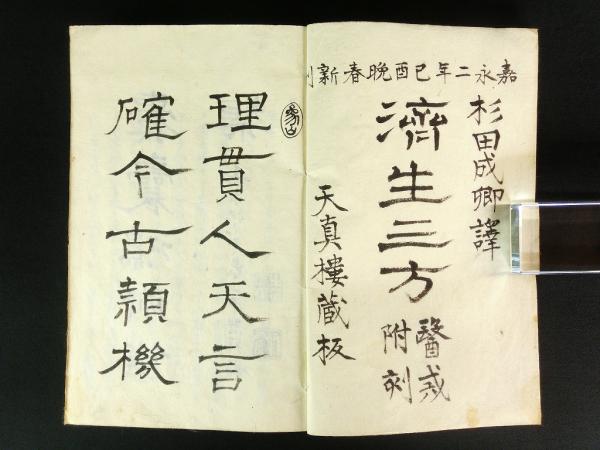 嘉永二年己酉晩春新刊
杉田成卿譯
濟生三方
醫戒
附刻
天真樓蔵板
理貫人天言
確今古頴機